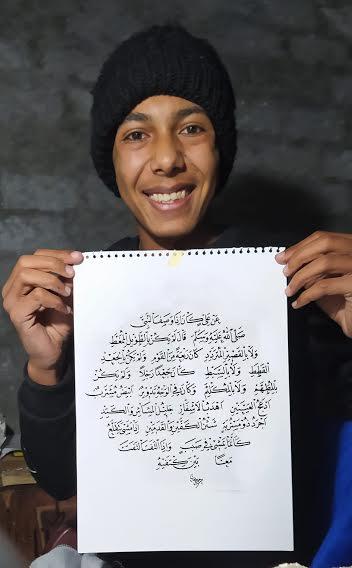 عن علي كان إذا وصف النبي
صلى الله عليه وسلم قال لم يكن بالطويل الممغط
ولا بالقصير المتردد كان ربعة من القوم ولم يكن بالجعد
القطط ولا بالسبط كان جعدا رجلا ولم يكن
بالمطهم ولا بالمكلثم وكان في الوجه تدوير ابيض مشرب
ادعج العينين اهدب الاشفار جليل المشاش والكتد
اجرد ذو مسربة شثن الكفين والقدمين اذا مشى تقلع
كانما يمشي في صبب واذا التفت التفت
معا بين كتفيه